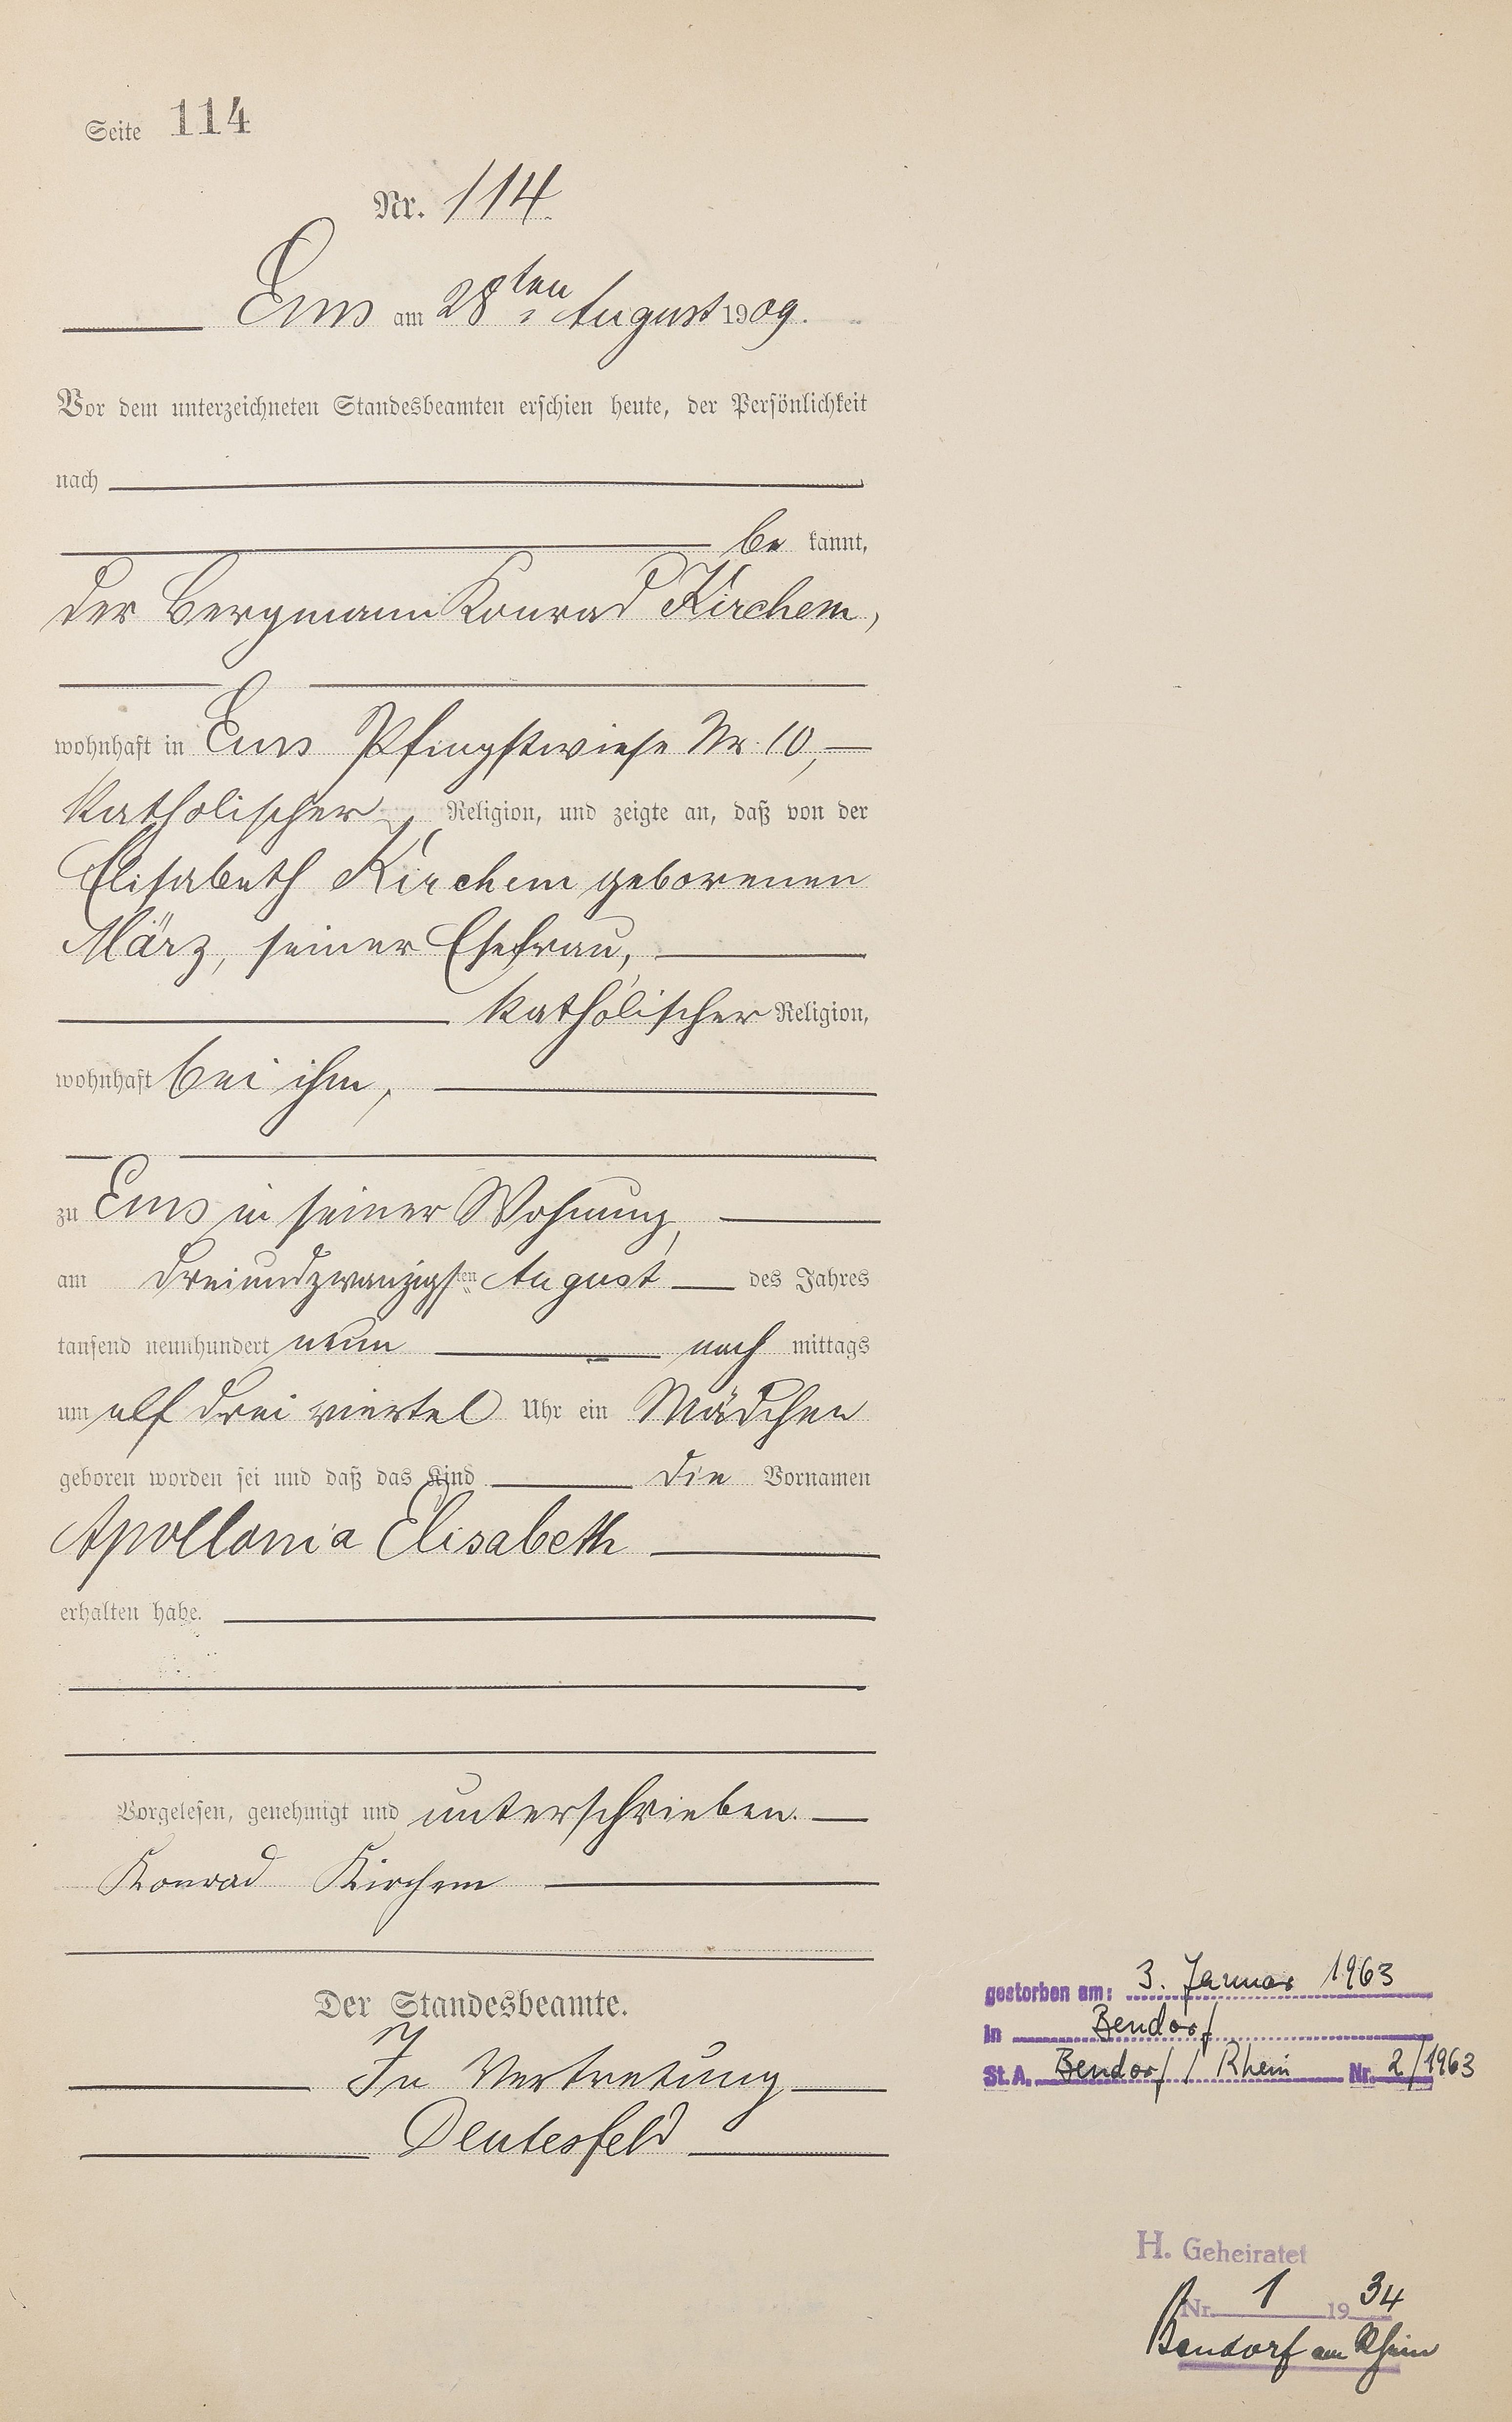 Seite 114
Nr. 114
Ems am 28ten August 1909.
Vor dem unterzeichneten Standesbeamten erschien heute, der Persönlichkeit
nach
be kannt,
der Bergmann Konrad Kirchem,
wohnhaft in Ems Pfingstwiese Nr. 10,
katholischer Religion, und zeigte an, daß von der
Elisabeth Kirchem geborenen
März, seiner Ehefrau,
katholischer Religion,
wohnhaft bei ihm,
zu Ems in seiner Wohnung,
am dreiundzwanzigsten August des Jahres
tausend neunhundert neun nach mittags
um elf drei viertel Uhr ein Mädchen
geboren worden sei und daß das Kind die Vornamen
Apollonia Elisabeth
erhalten habe.
Vorgelesen, genehmigt und unterschrieben.
Konrad Kirchem
Der Standesbeamte.
In Vertretung
Deutesfeld
gestorben am: 3. Januar 1963
in Bendorf
St.A. Bendorf / Rhein Nr. 2/1963
H. Geheiratet
Nr. 1 1934
Bendorf am Rhein